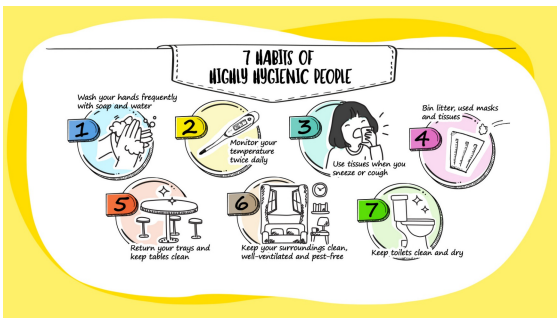 7 HABITS OF
HIGHLY HYGIENIC PEOPLE
Wash your hands frequently
with soap and water
1
2
Monitor your
temperature
twice daily
3
Use tissues when you
sneeze or cough
Bin litter, used masks
and tissues
4
5
Return your trays and
keep tables clean
6
Keep your surroundings clean,
well-ventilated and pest-free
7
Keep toilets clean and dry